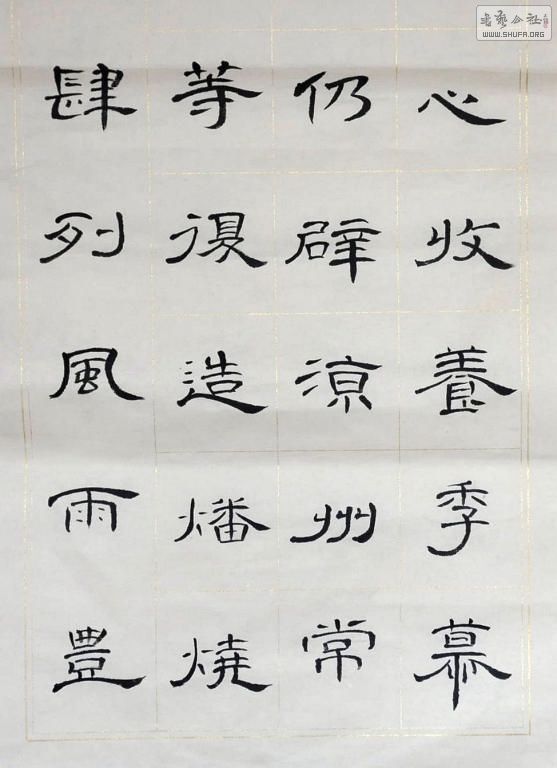 心收養季慕
仍辟涼州常
等復造燔燒
肆列風雨豊
書藝公社
WWW.SHUFA.ORG